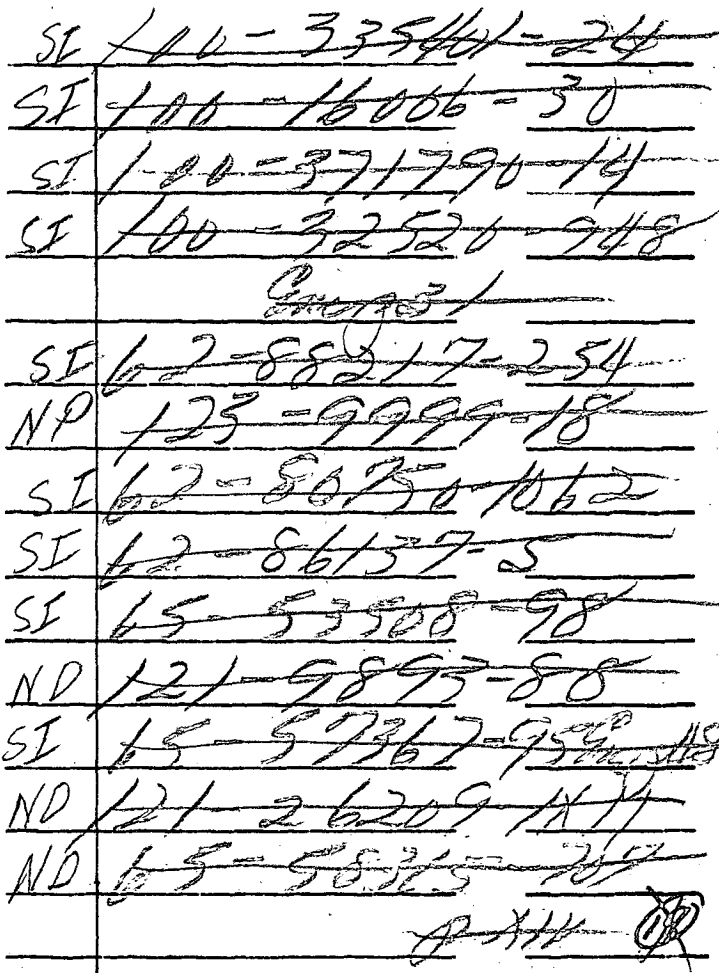 SI 100-335401-24
SI 100-16006-30
SI 100-371790-14
SI 100-32520-948
SI 62-88217-254
NP 123-9999-18
SI 62-80750-1062
SI 62-86137-5
SI 65-53508-98
ND 121-9893-88
SI 65-57367-95
ND 121-26209-1X11
ND 65-58315-707